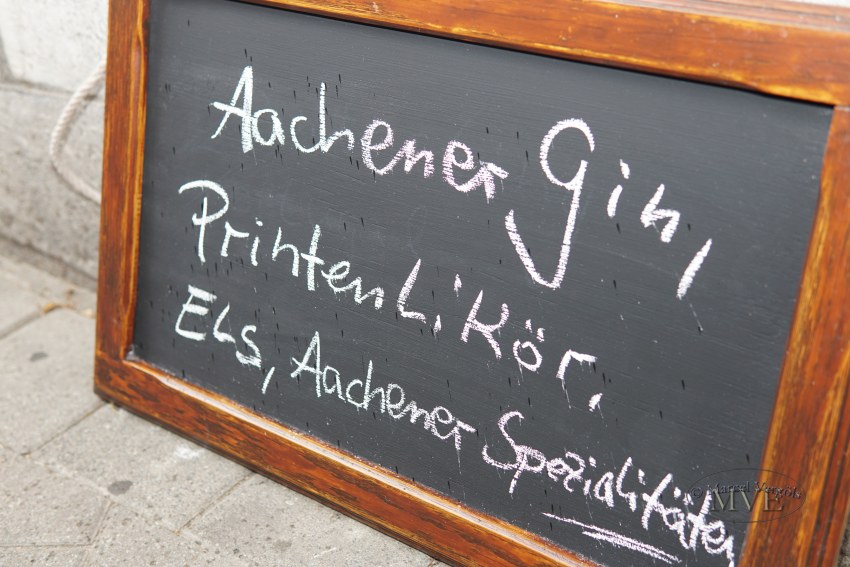 Aachener Gin,
Printen Likör,
ELS, Aachener Spezialitäten
MVE